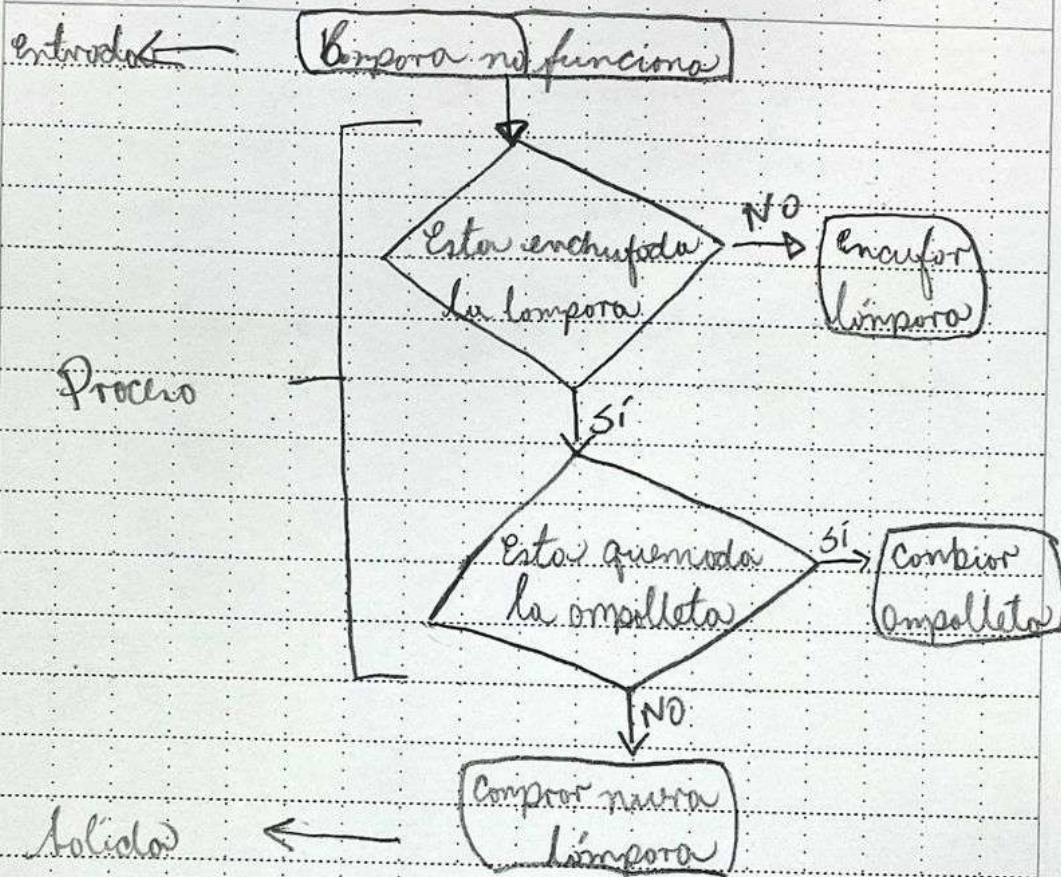 Entrada
Lámpara no funciona
Esta enchufada
la lampara
NO
Encufar
lámpara
Proceso
SÍ
Esta quemada
la ampolleta
SÍ
Cambiar
ampolleta
NO
Comprar nueva
lámpara
Salida